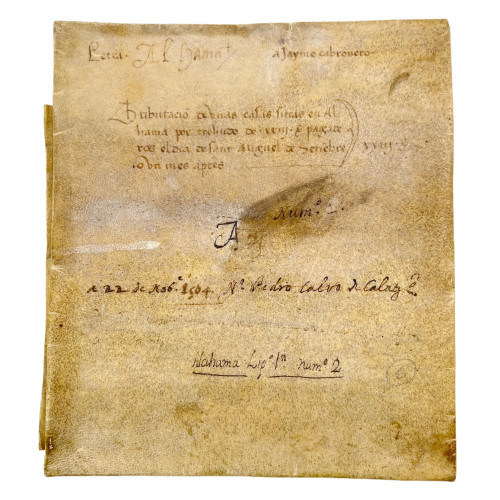 Letra Alhama a Jayme cabronero
Tributacio de unas casas sitas en Al
hama por trehudo de xxiij s pagade
ros el dia de sant Miguel de Setiembre xxiij s
o un mes apres
Num.º 2.
A
a 22 de Nob.e 1504 N.º Pedro Calvo de Calay.d
Alhama Lig.ª 1.ª num.º 2